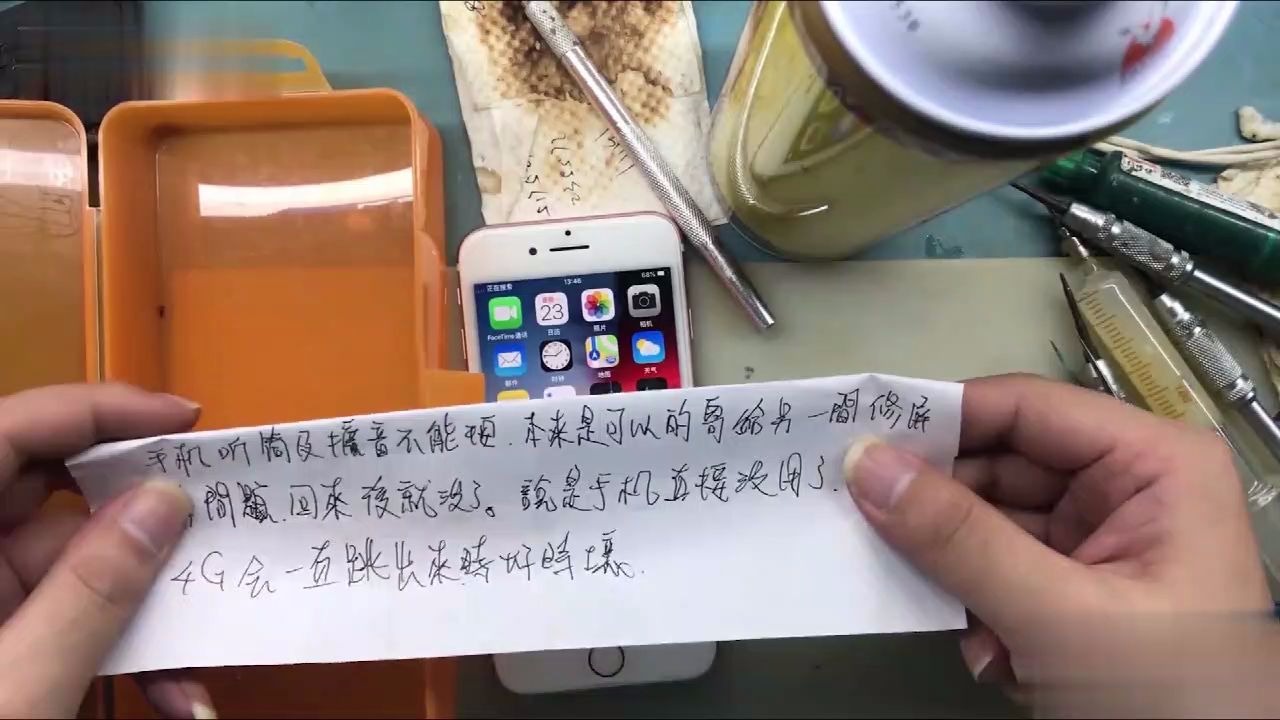 正在搜索
13:46
68%
23
FaceTime通话
日历
照片
相机
邮件
时钟
地图
天气
手机听筒及擴音不能用.本来是可以的寄給另一間修屏
問題.回来後就没了。說是手机直接没用了.
4G会一直跳出来時好時壞.